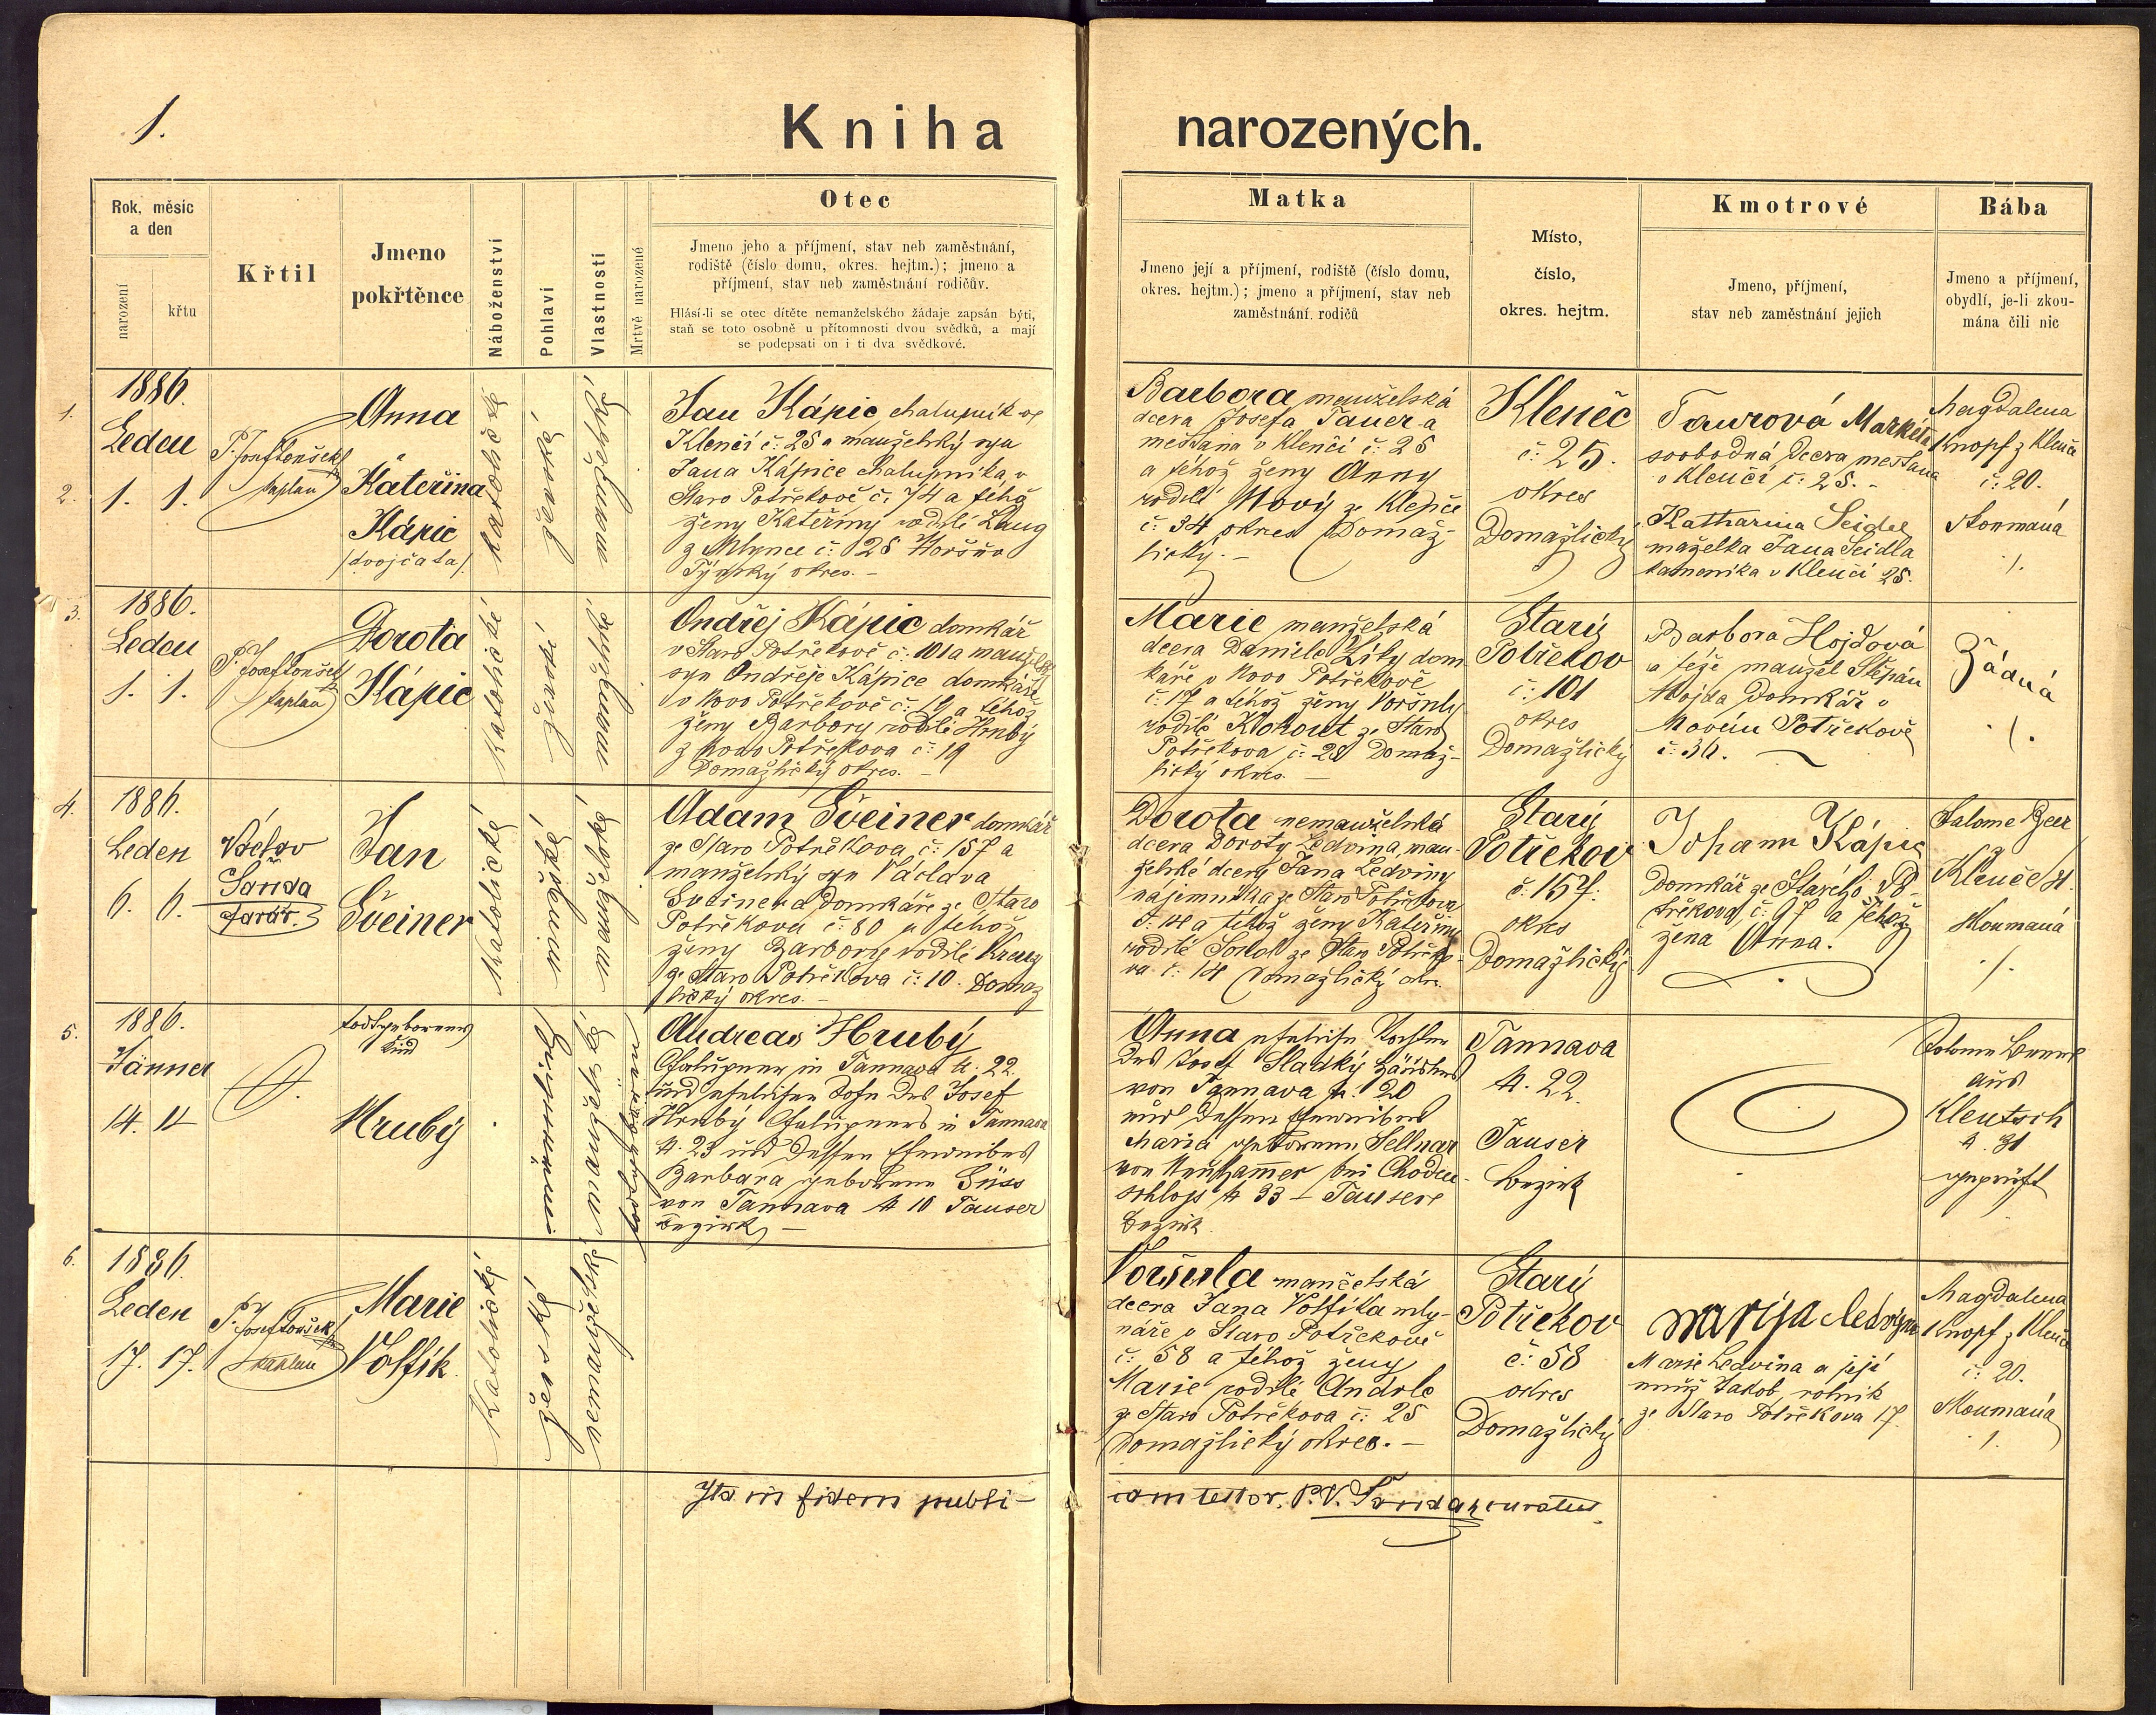 1.
Kniha narozených.
Rok, měsíc
a den
narození
křtu
Křtil
Jmeno
pokřtěnce
Náboženství
Pohlaví
Vlastnosti
Mrtvě narozené
Otec
Jmeno jeho a příjmení, stav neb zaměstnání,
rodiště (číslo domu, okres. hejtm.); jmeno a
příjmení, stav neb zaměstnání rodičův.
Hlásí-li se otec dítěte nemanželského žádaje zapsán býti,
staň se toto osobně u přítomnosti dvou svědků, a mají
se podepsati on i ti dva svědkové.
Matka
Jmeno její a příjmení, rodiště (číslo domu,
okres. hejtm.); jmeno a příjmení, stav neb
zaměstnání rodičů
Místo,
číslo,
okres. hejtm.
Kmotrové
Jmeno, příjmení,
stav neb zaměstnání jejich
Bába
Jmeno a příjmení,
obydlí, je-li zkou-
mána čili nic
1.
2.
1886.
Leden
1. 1.
P. Josef Tonšek
kaplan
Anna
a
Kateřina
Kápic
/dvojčata/
katolické
ženské
manželské
Jan Kápic chalupník ve
Klenčí č: 25 a manželský syn
Jana Kápice chalupníka v
Staro Potřekově č. 74 a téhož
ženy Kateřiny rodilé Lang
z Mlynce č: 28 Horšův
Týnský okres. –
Barbora manželská
dcera Josefa Tauer a
mešťana v Klenčí č: 25
a téhož ženy Anny
rodilé Nový ze Klenče
č: 34 okres Domaž-
lický. –
Kleneč
č: 25.
okres
Domažlický
Taurová Markéta
svobodná dcera mešťana
v Klenčí č: 25. –
Katharina Seidel
manželka Jana Seidla
kameníka v Klenčí 25.
Magdalena
Knopf z Klenče
č: 20.
Zkoumaná
3.
1886.
Leden
1. 1.
P. Josef Tonšek
kaplan
Dorota
Kápic
Katolické
ženské
manželské
Ondřej Kápic domkář
v Staro Potřekově č: 101 a manželský
syn Ondřeje Kápice domkáře
v Novo Potřekově č: 19 a téhož
ženy Barbory rodilé Hrubý
z Novo Potřekova č: 19
Domažlický okres. –
Marie manželská
dcera Daniele Zíky dom
káře v Novo Potřekově
č: 17 a téhož ženy Voršuly
rodilé Kohout ze Staro
Potřekova č: 28 Domaž-
lický okres. –
Starý
Potřekov
č: 101
okres
Domažlický
Barbora Hojdová
a téže manžel Štěpán
Hojda Domkář v
Novém Potřekově
č: 36.
Žádná
4.
1886.
Leden
6. 6.
Václav
Šanda
farář.
Jan
Šveiner
Katolické
mužské
manželské
Adam Šveiner domkář
ze Staro Potřekova č: 157 a
manželský syn Václava
Sveinera Domkáře ze Staro
Potřekova č: 80 a téhož
ženy Barbory rodilé Kraus
ze Staro Potřekova č: 10. Domaž
lický okres. –
Dorota nemanželská
dcera Doroty Ledvina, man-
želské dcery Jana Ledviny
nájemníka ze Staro Potřekova
a téhož ženy Kateřiny
rodilé Sokol ze Staro Potřeko-
va č: 14 Domažlický okr.
Starý
Potřekov
č. 157.
okres
Domažlický
Johann Kápic
Domkář ze Starého Po-
třekova č: 97 a téhož
žena Anna.
Salome Beer
Kleneč 31.
Zkoumaná
5.
1886.
Jänner
14.
todtgeborenes
Kind
Hrubý
Andreas Hrubý
Chalupner in Tannava N. 22.
und ehelicher Sohn des Josef
Hrubý Chalupners in Tannava
N. 23 und dessen Eheweibes
Barbara geborene Süss
von Tannava N 10 Tauser
Bezirk –
Anna eheliche Tochter
des Josef Sladký Häuslers
von Tannava N. 20
und dessen Eheweibes
Maria geborenen Sellnar
von Neubamer bei Choden-
schloss N 33 – Tauser
Bezirk.
Tannava
N. 22.
Tauser
Bezirk
aus
Klentsch
N. 31
geprüft
6.
1886
Leden
17. 17.
P. Josef Tonšek
kaplan
Marie
Volfík
Katolické
ženské
nemanželské
Voršula manželská
dcera Jana Volfíka mly-
náře v Staro Potřekově
č: 58 a téhož ženy
Marie rodilé Andrle
ze Staro Potřekova č: 25
Domažlický okres. –
Starý
Potřekov
č: 58
okres
Domažlický
Marija Ledvina
Marie Ledvina a její
muž Jakob, rolník
ze Staro Potřekova 17.
Magdalena
Knopf z Klenče
č: 20.
Zkoumaná
Ita in fidem publi-
cam testor. P. V. Šanda curatus.